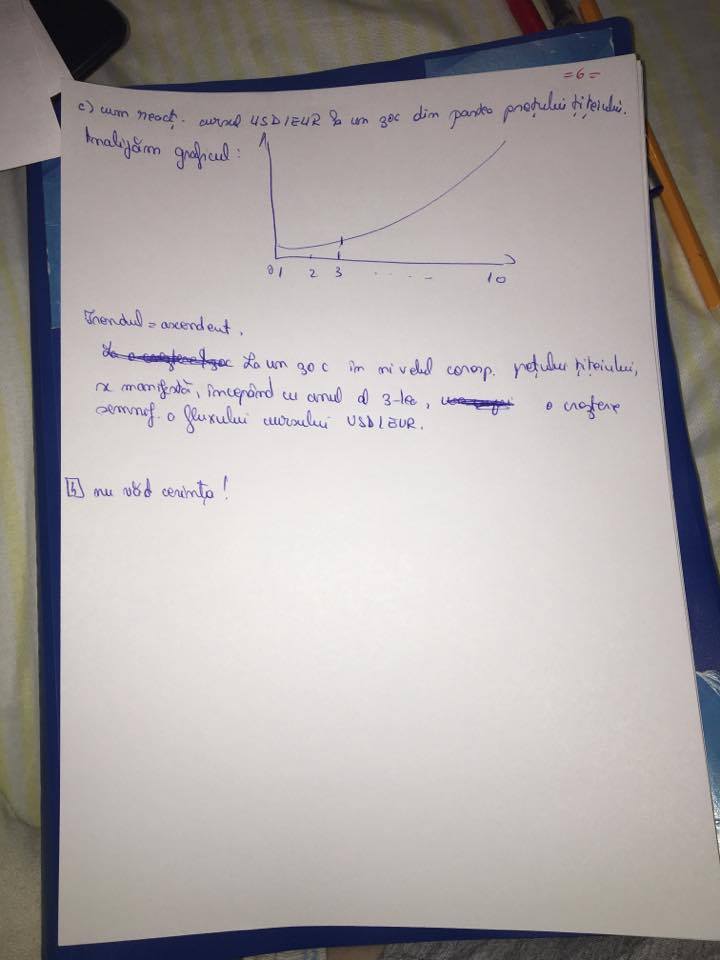 =6=
c) cum reacț. cursul USD/EUR la un șoc din partea prețului țițeiului.
Analizăm graficul:
0 1 2 3 . . . . - 10
Trendul = ascendent.
La o creștere/șoc La un șoc în nivelul coresp. prețului țițeiului,
se manifestă, începând cu anul al 3-lea, o creștere
semnif. a fluxului cursului USD/EUR.
4 nu văd cerința!